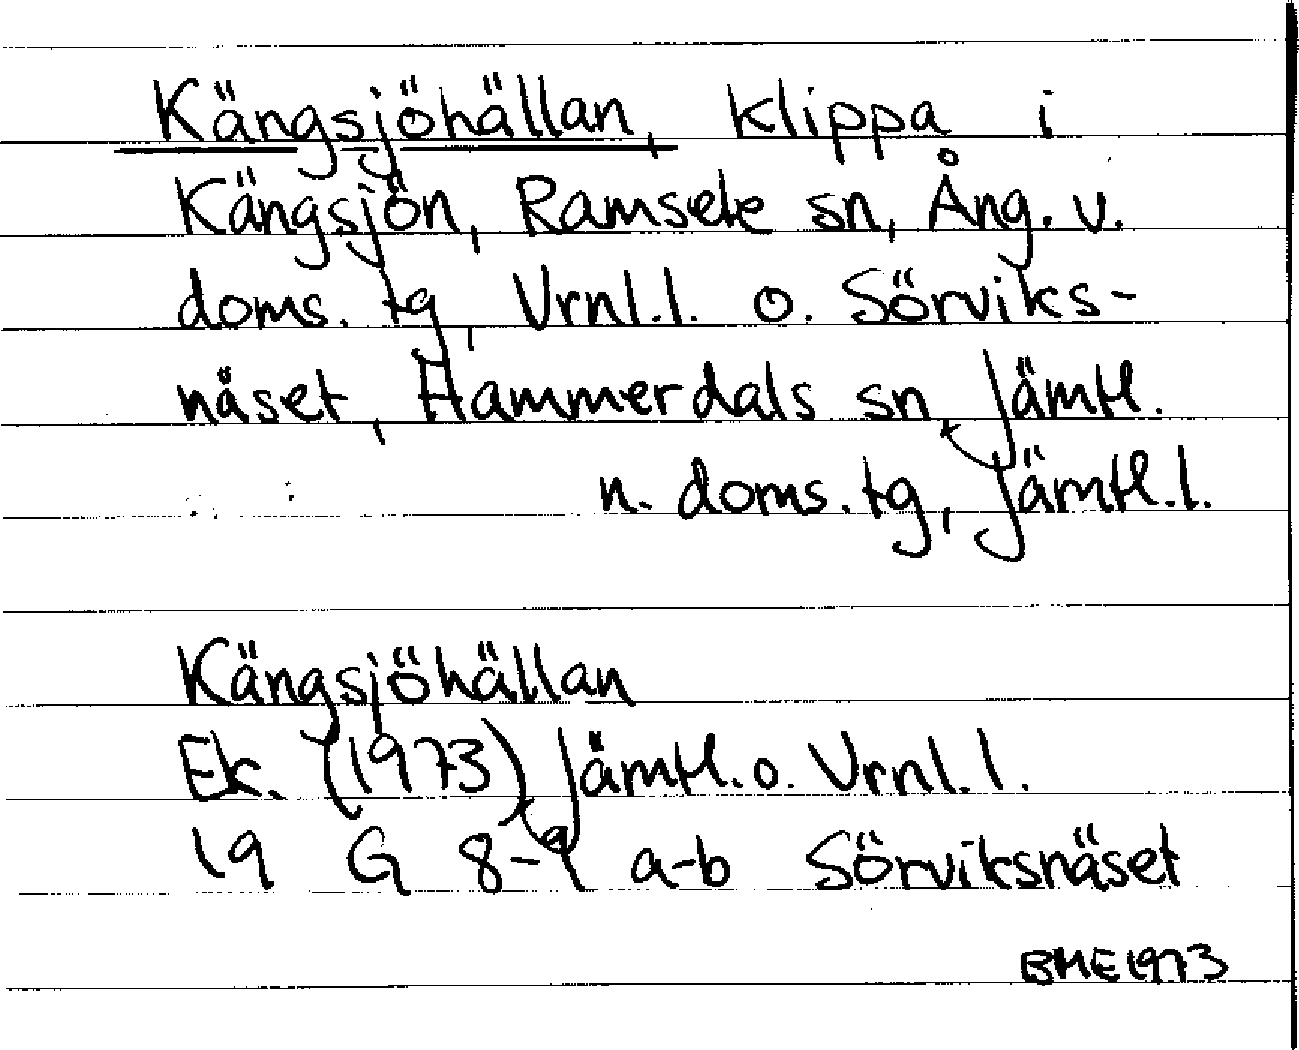 Kängsjöhällan, klippa i
Kängsjön, Ramsele sn, Ång. v.
doms. tg, Vrnl.l. o. Sörviks-
näset, Hammerdals sn, Jämtl.
n. doms. tg, Jämtl.l.
Kängsjöhällan
Ek. (1973), Jämtl. o. Vrnl.l.
19 G 8-9 a-b Sörviksnäset
BME 1973